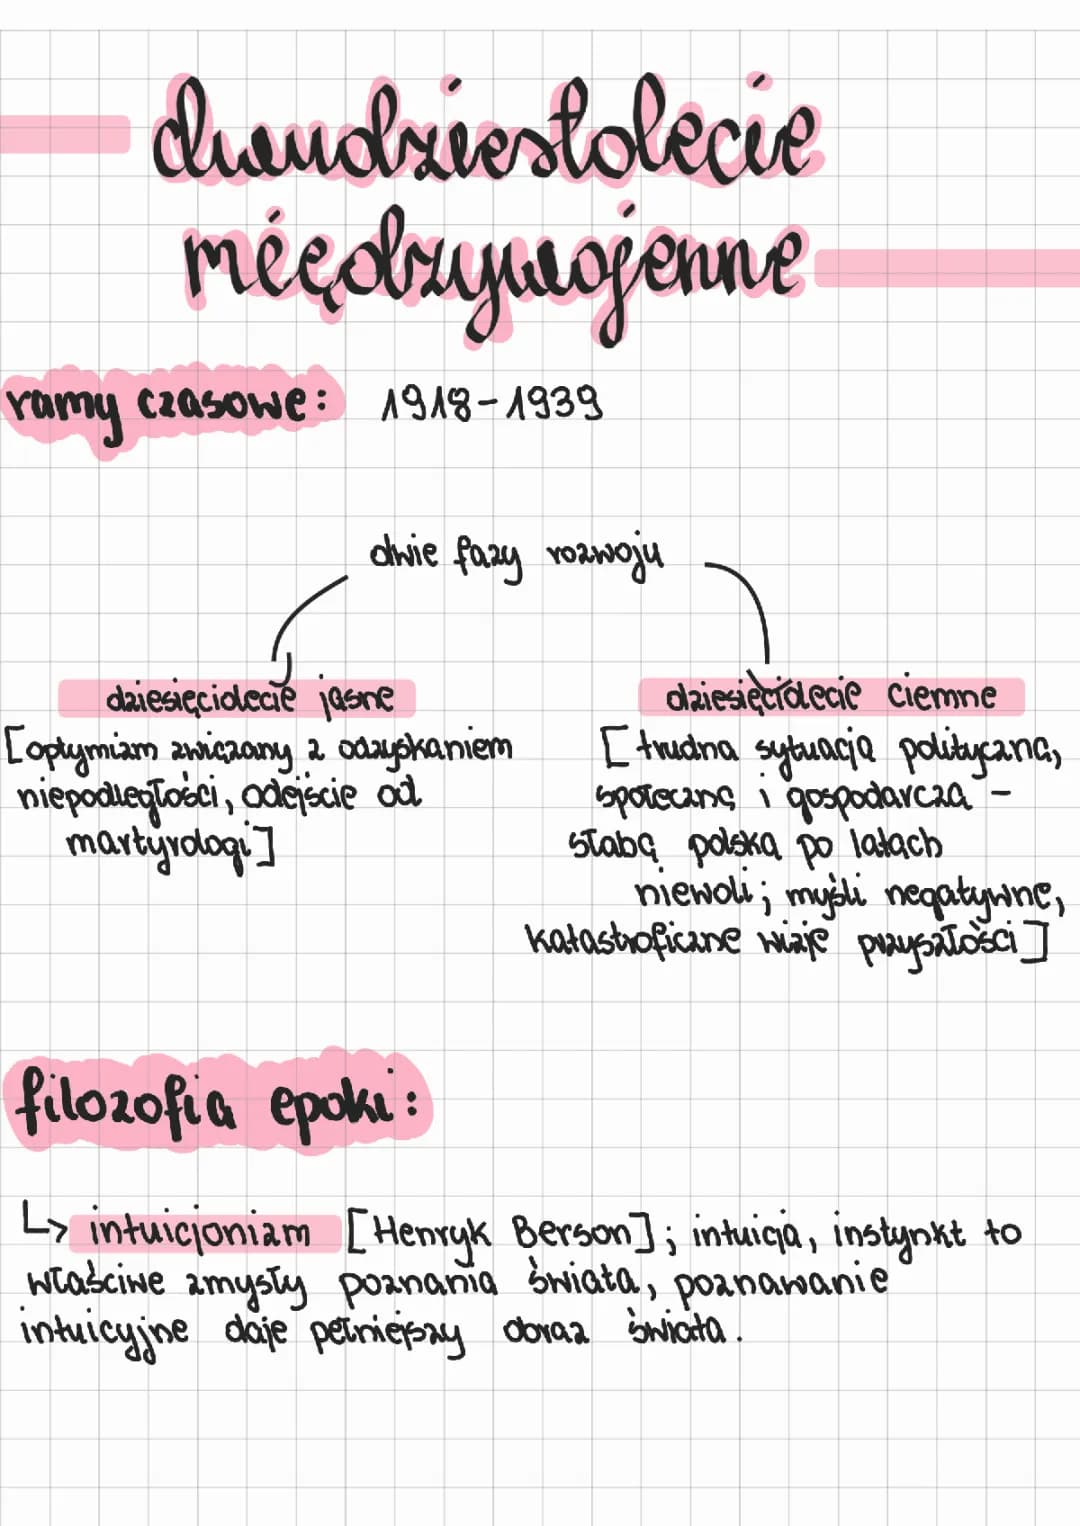 dwudziestolecie
międzywojenne
ramy czasowe: 1918-1939
dwie fazy rozwoju
dziesięciolecie jasne
[optymizm związany z odzyskaniem
niepodległości, odejście od
martyrologi]
dziesięciolecie ciemne
[trudna sytuacja polityczna,
społeczna i gospodarcza -
słaba polska po latach
niewoli; myśli negatywne,
katastroficzne wizje przyszłości]
filozofia epoki:
↳ intuicjonizm [Henryk Berson]; intuicja, instynkt to
właściwe zmysły poznania świata, poznawanie
intuicyjne daje pełniejszy obraz świata.